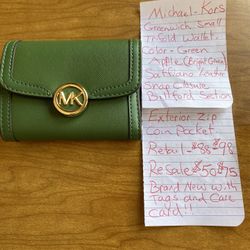 MK
Michael-Kors
Greenwich Small
Trifold Wallet
Color-Green
Apple (Bright Green)
Saffiano Leather
Snap Closure
Billfold Section
Exterior Zip
Coin Pocket
Retail-$98
Resale $50 $75
Brand New with
Tags and Care
Card!!